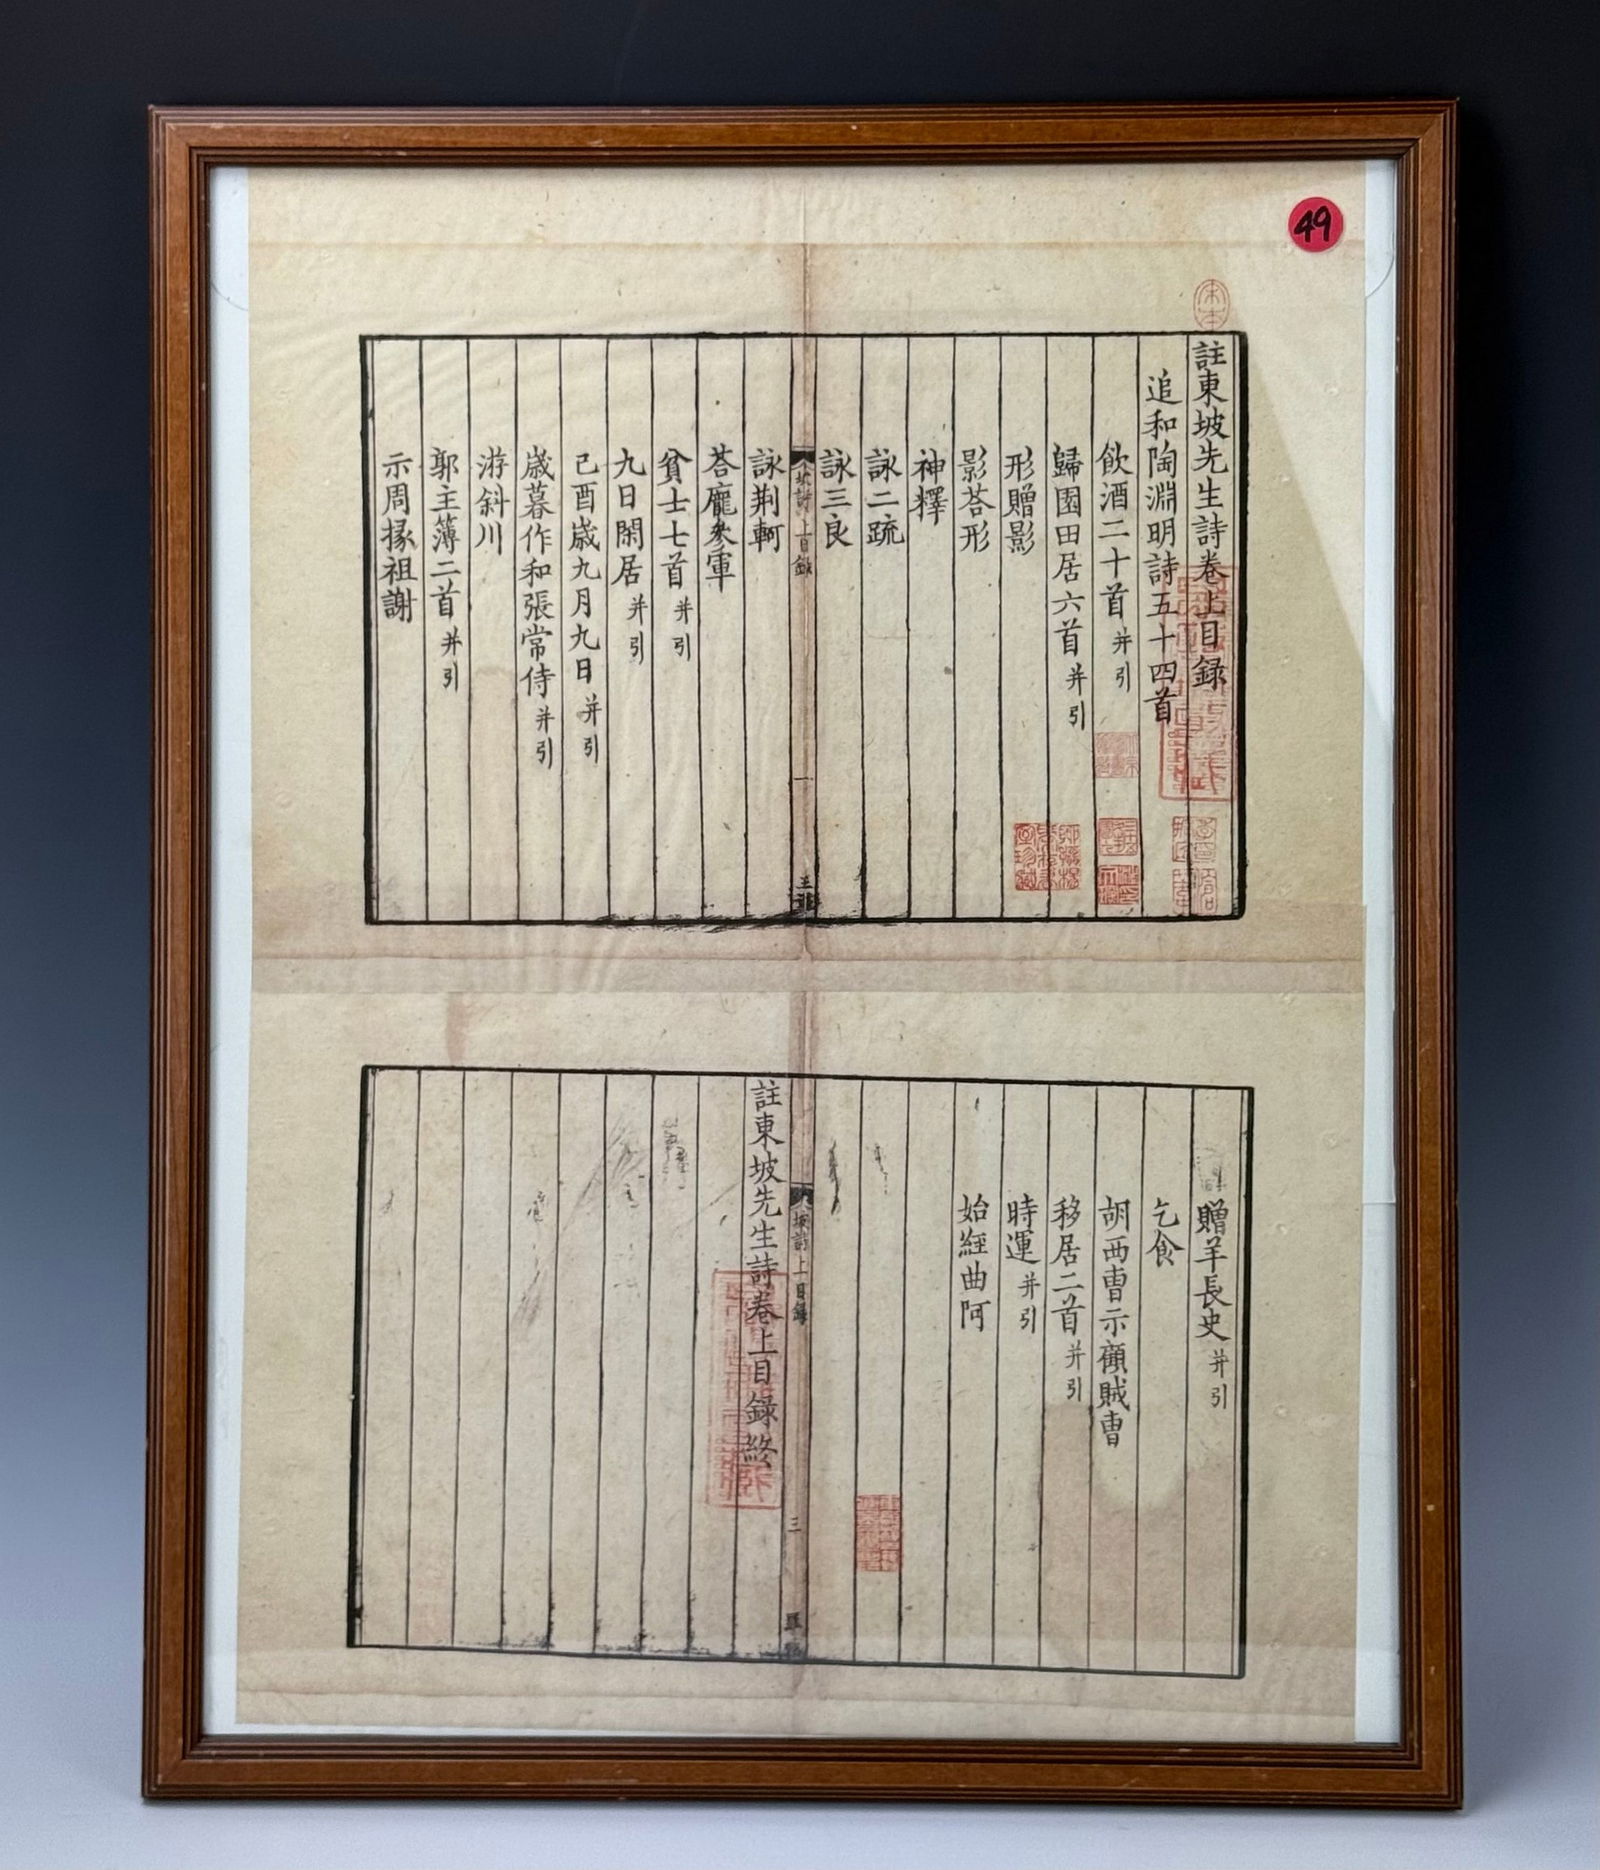 49
註東坡先生詩卷上目録
追和陶淵明詩五十四首
飲酒二十首并引
歸園田居六首并引
形贈影
影荅形
神釋
詠二疏
詠三良
坡詩上目録
一
詠荆軻
荅龐參軍
貧士七首并引
九日閑居并引
己酉歳九月九日并引
歳暮作和張常侍并引
游斜川
郭主薄二首并引
示周掾祖謝
贈羊長史并引
乞食
胡西曹示顧賊曹
移居二首并引
時運并引
始經曲阿
坡詩上目録
三
註東坡先生詩卷上目録終